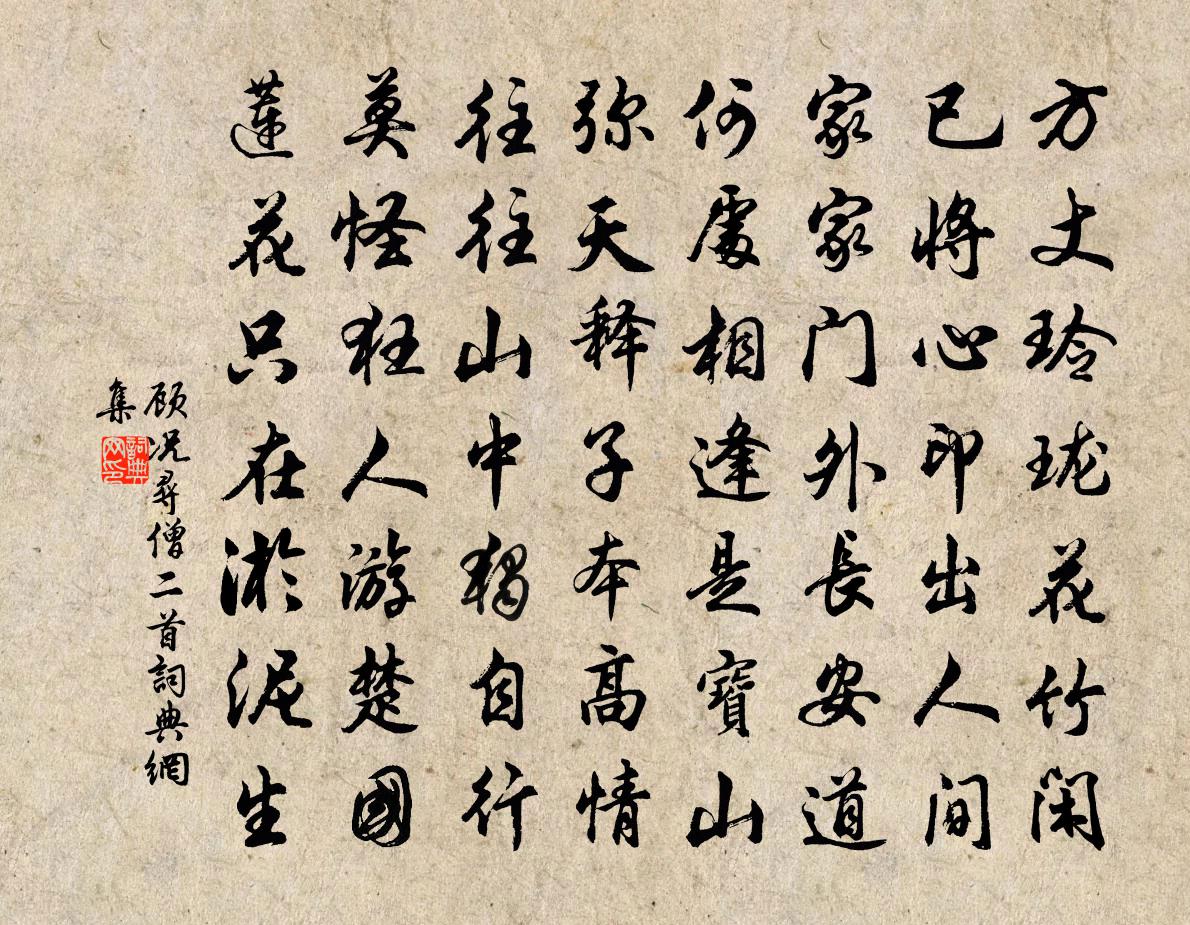 方丈玲珑花竹闲
已将心印出人间
家家门外長安道
何處相逢是寶山
弥天释子本高情
往往山中独自行
莫怪狂人游楚國
蓮花只在淤泥生
顾况尋僧二首詞典網
集
詞典
网印